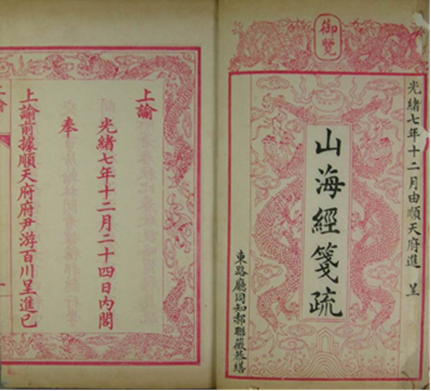 御覽
光緒七年十二月由順天府進 呈
山海經箋疏
東路廳同知郝聯薇恭繕
上諭
光緒七年十二月二十四日內閣
奉
上諭前據順天府府尹游百川呈進已